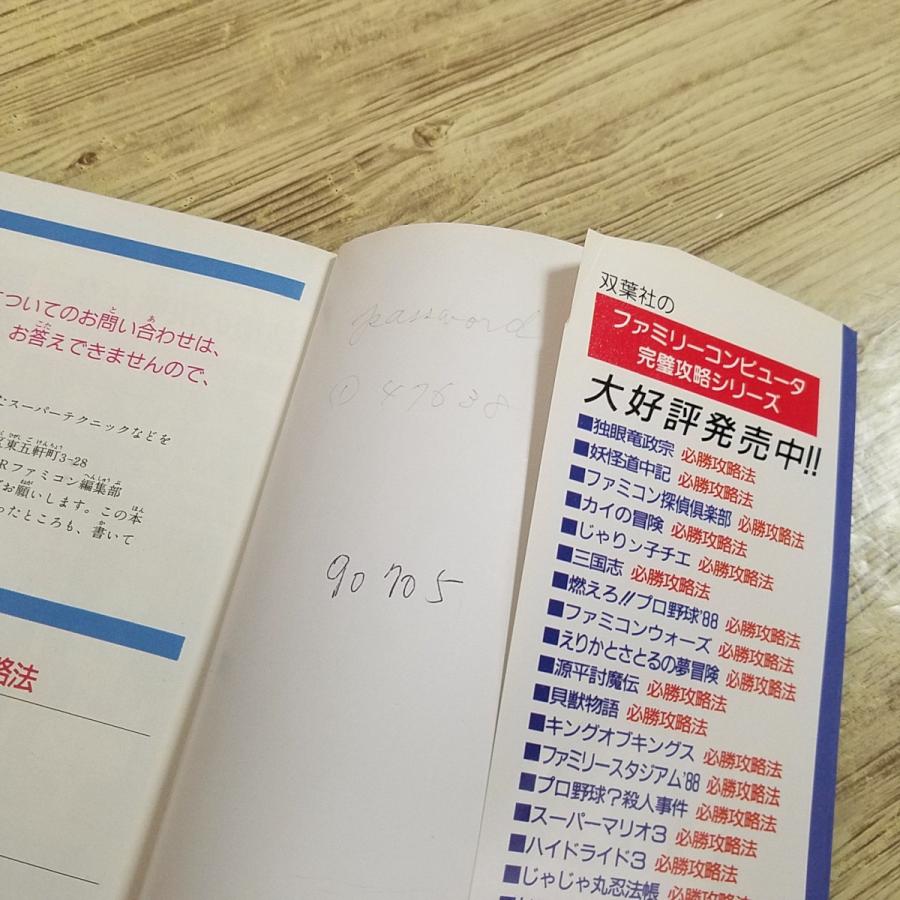 ついてのお問い合わせは、
お答えできませんので、
たスーパーテクニックなどを
東五軒町3-28
Rファミコン編集部
お願いします。この本
ったところも、書いて
略法
password
① 47638
90705
双葉社の
ファミリーコンピュータ
完璧攻略シリーズ
大好評発売中!!
■独眼竜政宗 必勝攻略法
■妖怪道中記 必勝攻略法
■ファミコン探偵倶楽部 必勝攻略法
■カイの冒険 必勝攻略法
■じゃりン子チエ 必勝攻略法
■三国志 必勝攻略法
■燃えろ!!プロ野球'88 必勝攻略法
■ファミコンウォーズ 必勝攻略法
■えりかとさとるの夢冒険 必勝攻略法
■源平討魔伝 必勝攻略法
■貝獣物語 必勝攻略法
■キングオブキングス 必勝攻略法
■ファミリースタジアム'88 必勝攻略法
■プロ野球?殺人事件 必勝攻略法
■スーパーマリオ3 必勝攻略法
■ハイドライド3 必勝攻略法
■じゃじゃ丸忍法帳 必勝攻略法